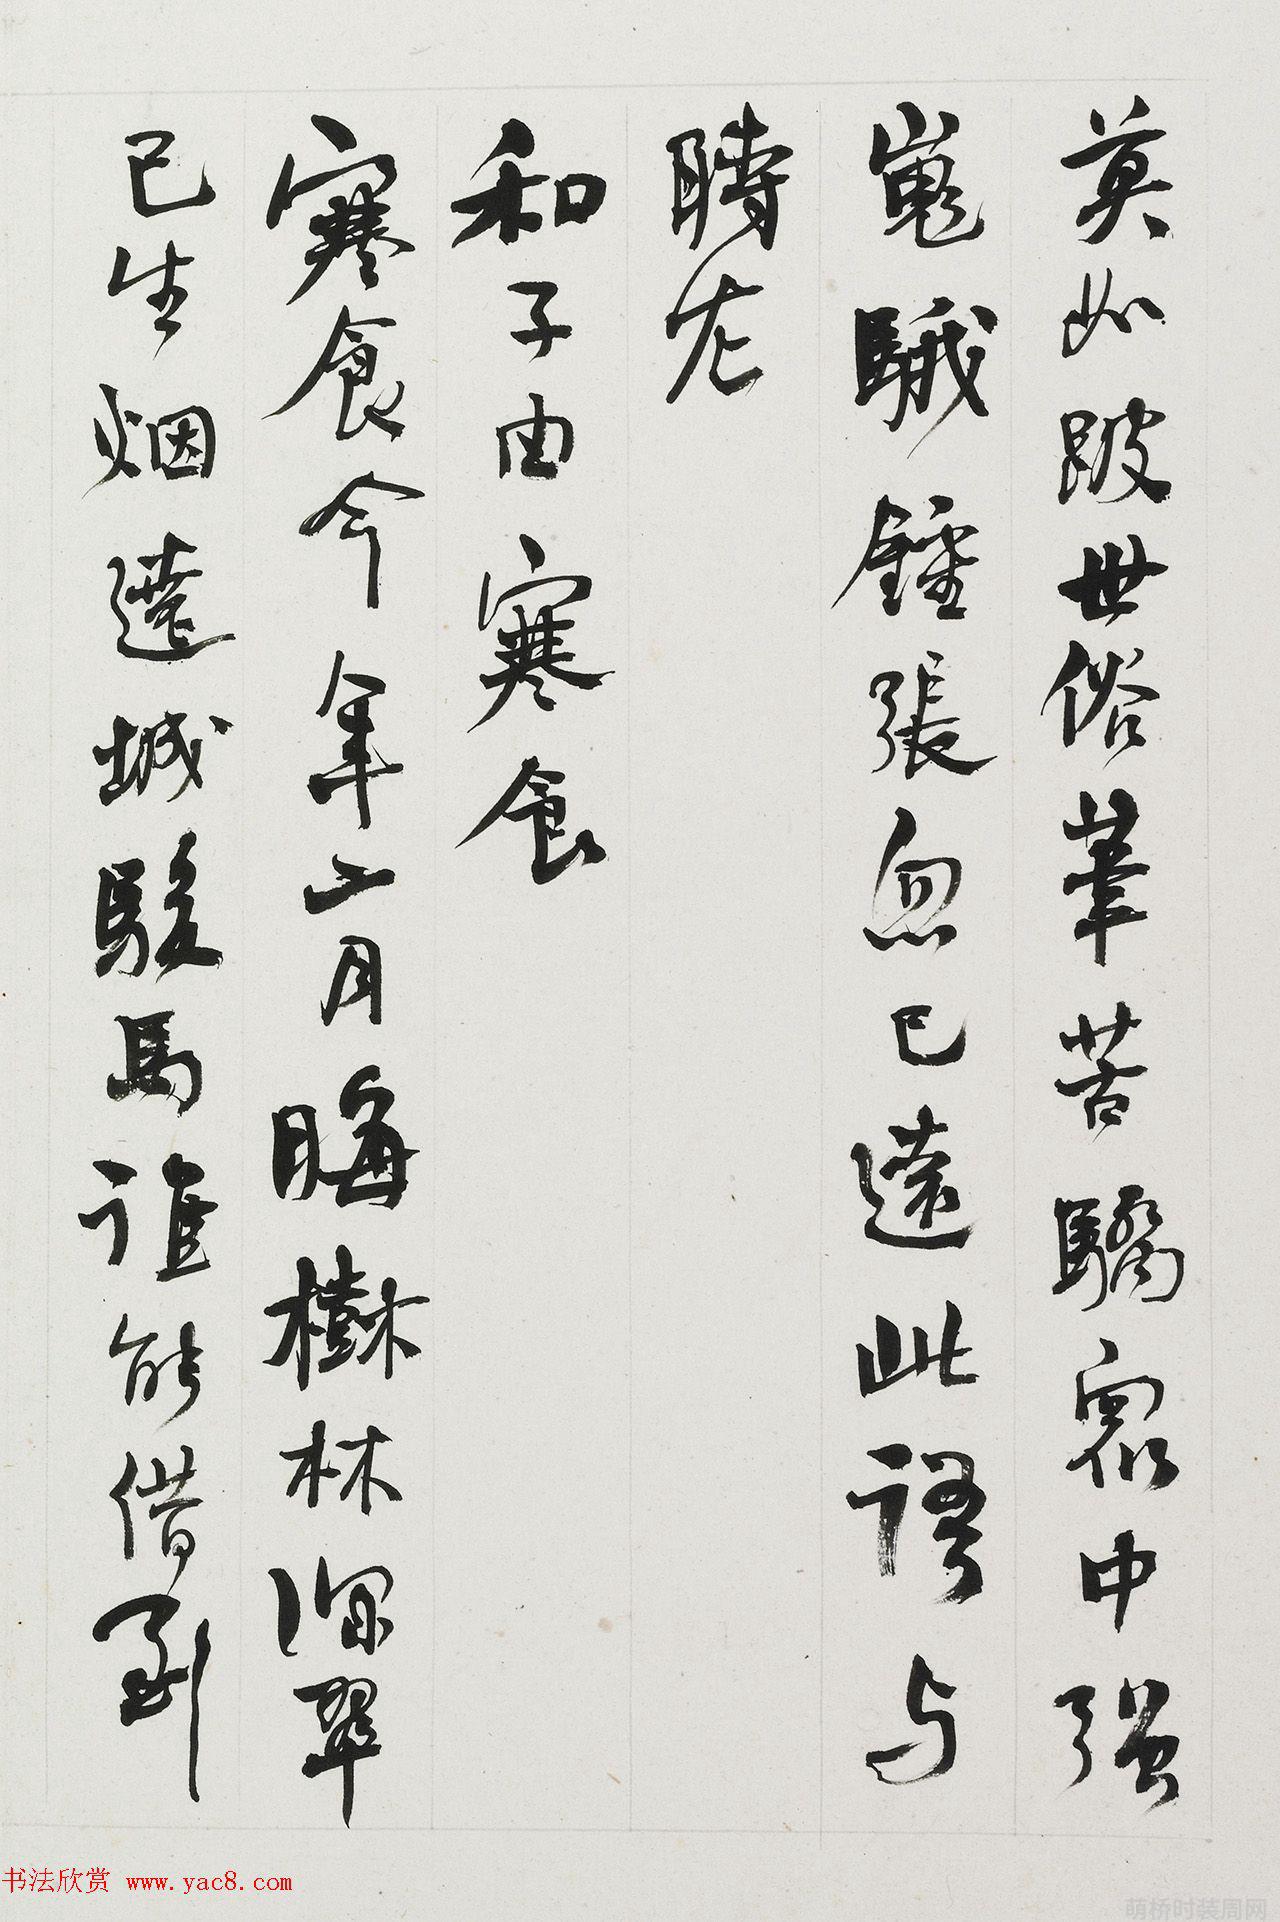 莫如跛世俗筆苦驕衆中強
嵬騀鍾張忽已遠此語与
時左
和子由寒食
寒食今年二月晦樹林深翠
已生烟遶城駿馬誰能借到
书法欣赏 www.yac8.com
萌桥时装周网